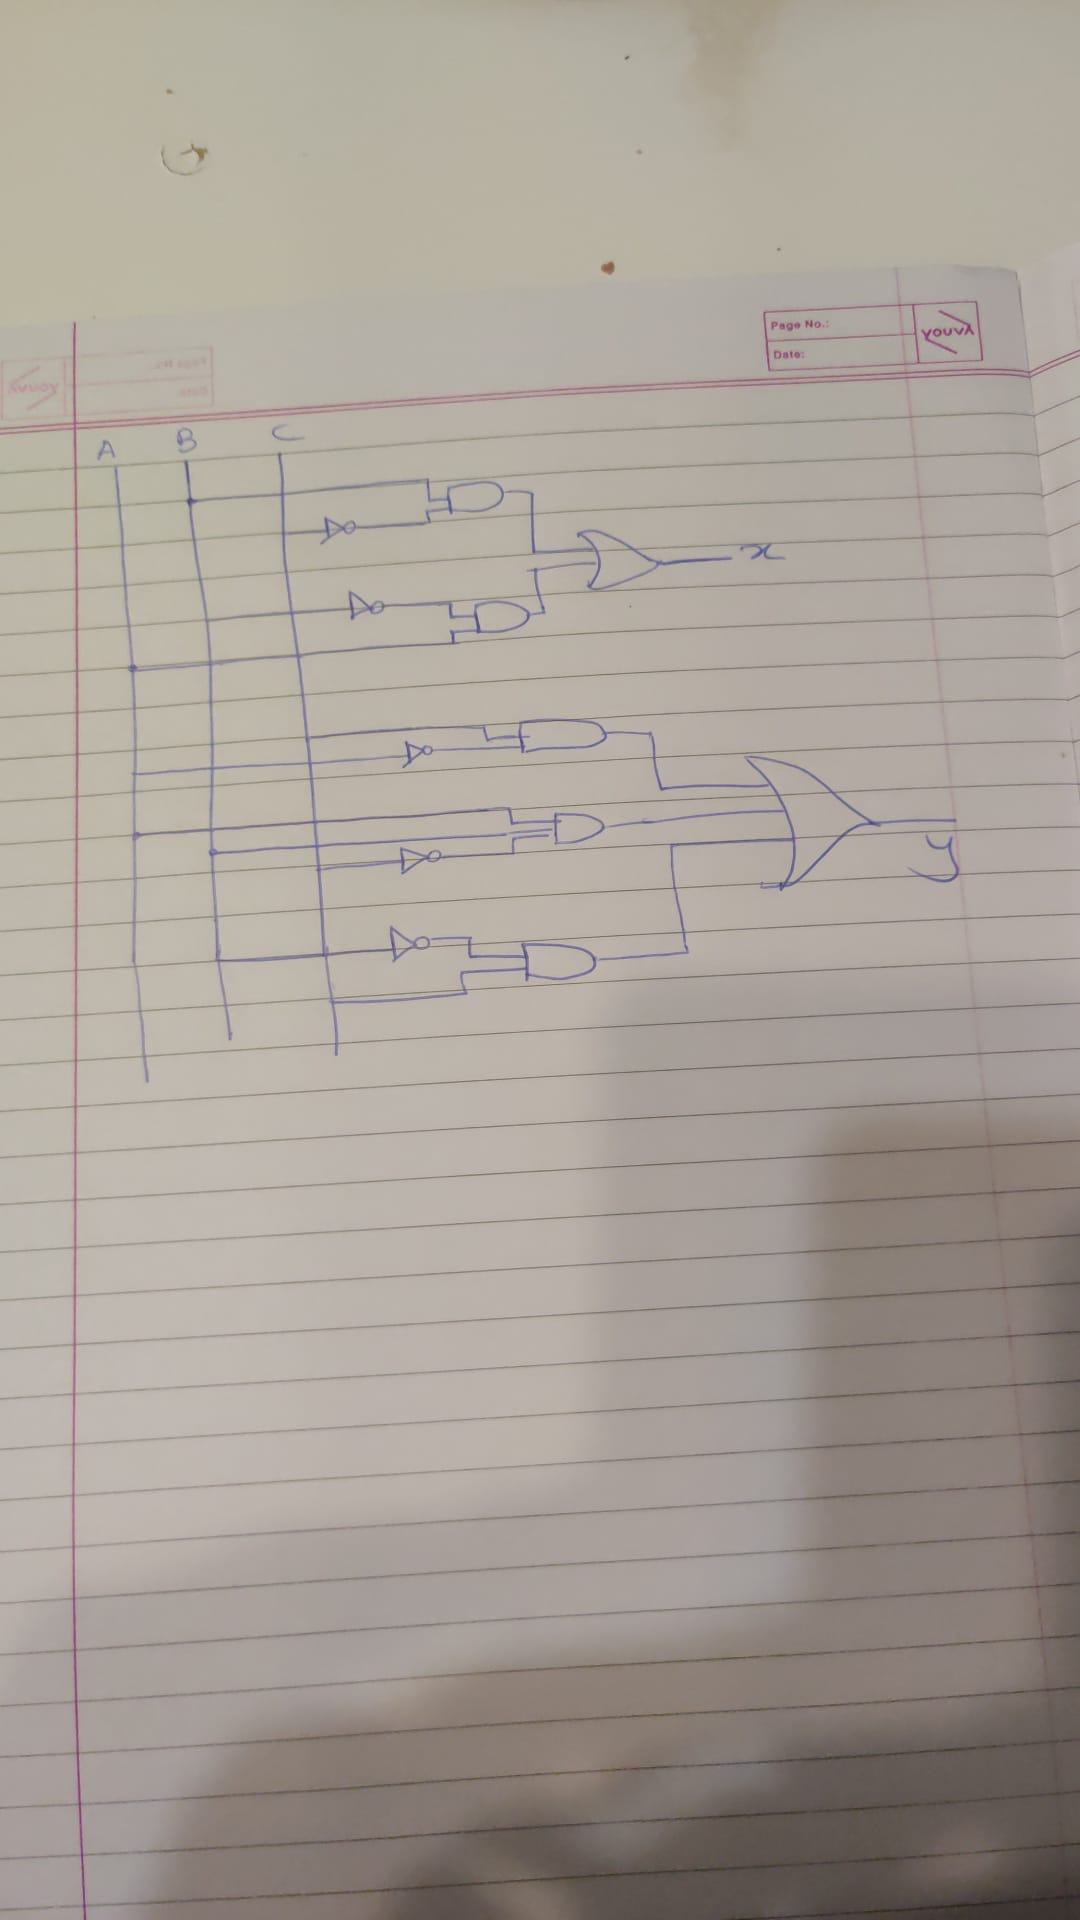 Page No.:
Date:
YOUVA
A B C
x
y